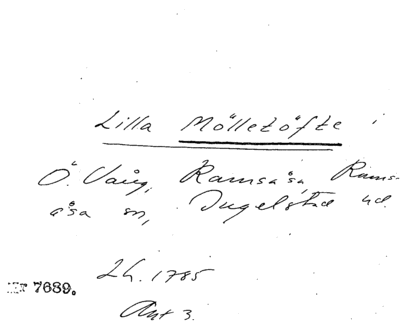 Lilla Mölletöfte i
Ö. Vång, Ramsåsa, Rams-
åsa sn, Ingelstad hd.
Lh. 1785
7689.
Akt 3.